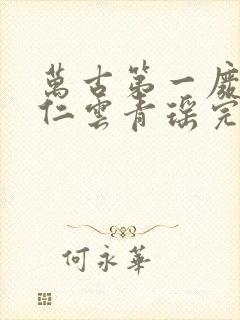 萬古第一廢
仁雲青瑤完
何永華